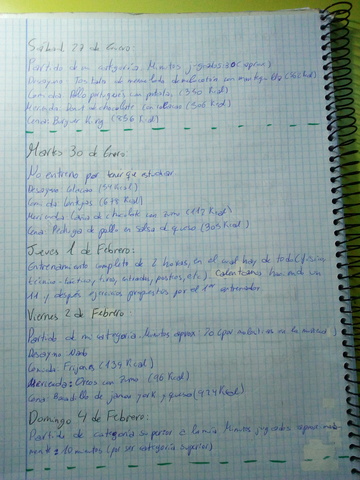 Sábado 27 de Enero:
Partido de mi categoría Minutos jugados: 30 (aprox)
Desayuno: Tostadas de mermelada de melocotón con mantequilla
Comida: Pollo portugues con patatas (350 Kcal)
Merienda: Donut de chocolate con relleno (506 Kcal)
Cena: Burguer King (856 Kcal)
Martes 30 de Enero:
No entreno por tener que estudiar.
Desayuno: (54 Kcal)
Comida: Lentejas (675 Kcal)
Merienda: de chocolate con zumo (112 Kcal)
Cena: Pechuga de pollo en salsa de queso (305 Kcal)
Jueves 1 de Febrero:
Entrenamiento completo de 2 horas, en el cual hay de todo (físico,
técnico-táctico, tiros, etc.) Calentamos haciendo un
11 y después ejercicios propuestos por el 1er entrenador.
Viernes 2 de Febrero
Partido de mi categoría. Minutos aprox: 20 (por molestias en la
Desayuno: Nada
Comida: Frijones (139 Kcal)
Merienda: Oreos con zumo (96 Kcal)
Cena: Bocadillo de jamon york y queso (424 Kcal)
Domingo 4 de Febrero:
Partido de categoría superior a la mía Minutos jugados aproximada-
mente: 10 minutos (por ser categoría superior)